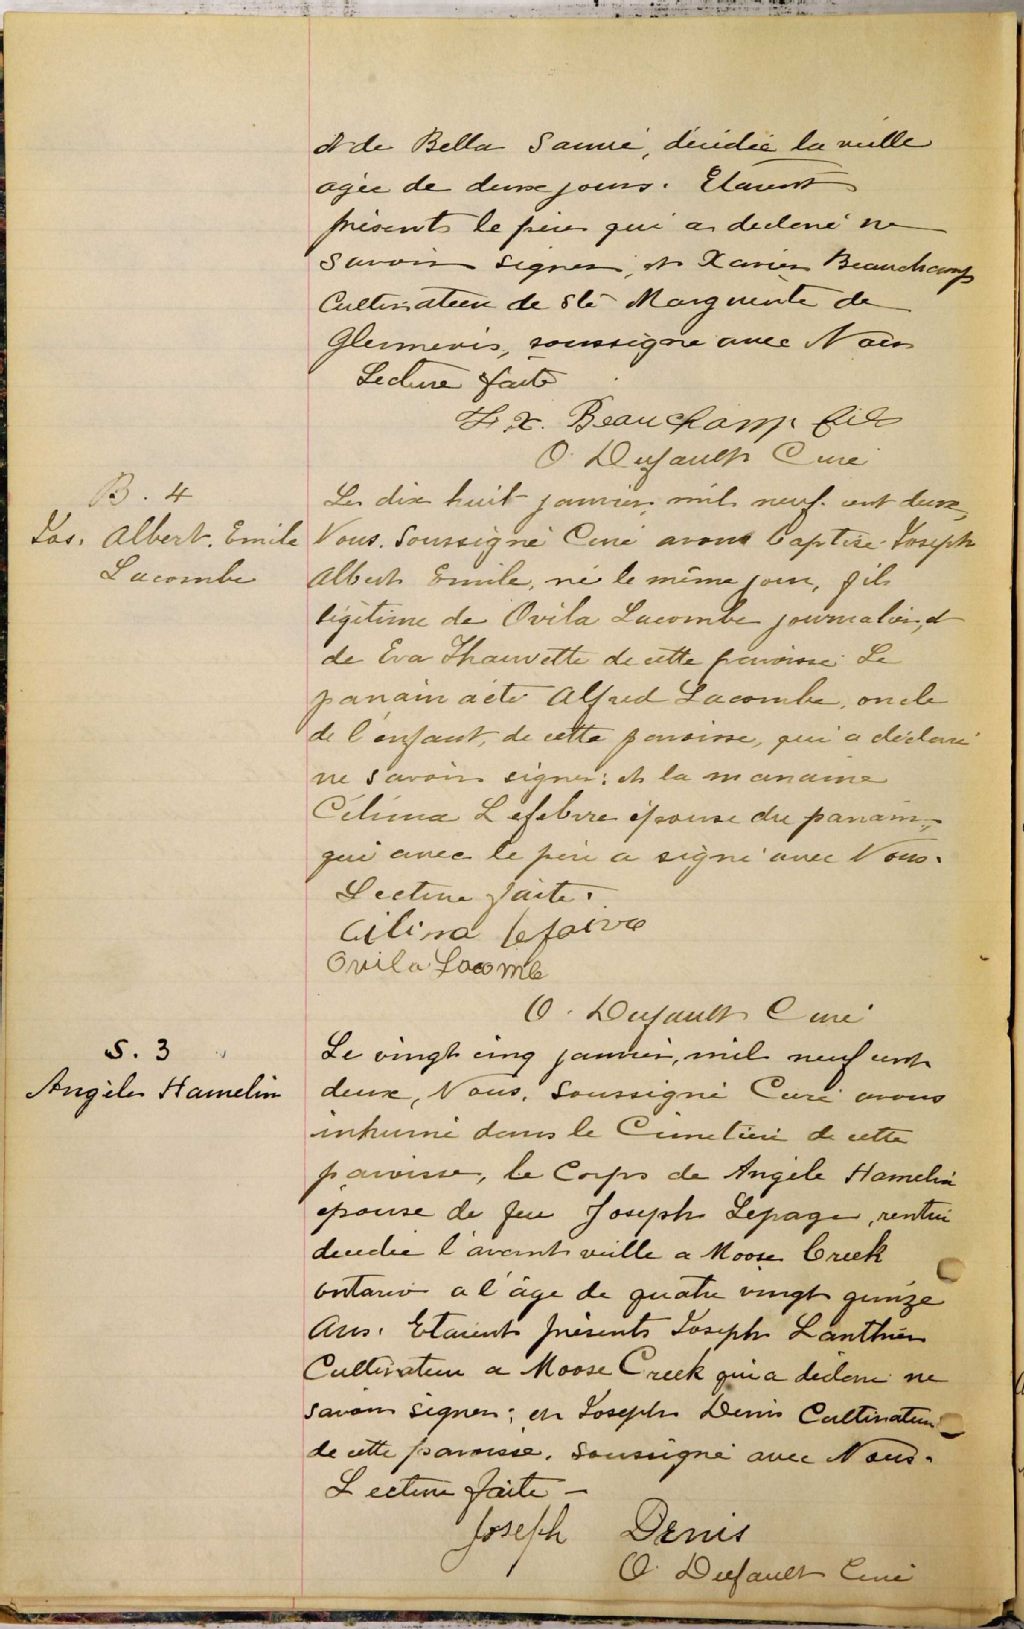 et de Bella Sauvé, décédée la veille
agée de deux jours. Etaient
présents le père qui a declaré ne
savoir signer, et Xavier Beauchamp
Cultivateur de Ste Marguerite de
soussigné avec Nous
Lecture faite
F. X. Beauchamp fils
O. Dufault Curé
B. 4
Jos. Albert. Emile
Lacombe
Le dix huit janvier mil neuf cent deux,
Nous. Soussigné Curé avons baptisé Joseph
Albert Emile, né le même jour, fils
légitime de Ovila Lacombe journalier, et
de Eva Thauvette de cette paroisse Le
parrain a été Alfred Lacombe, oncle
de l'enfant, de cette paroisse, qui a déclaré
ne savoir signer: et la marraine
Célina Lefebvre épouse du parrain,
qui avec le père a signé avec Nous.
Lecture faite.
Cilina lefaivre
Ovila Lacombe
O. Dufault Curé
S. 3
Angèle Hamelin
Le vingt cinq janvier, mil neuf cent
deux, Nous, Soussigné Curé avons
inhumé dans le Cimetière de cette
paroisse, le Corps de Angèle Hamelin
épouse de feu Joseph Lepage, rentier
decedée l'avant veille a Moose Creek
Ontario a l'âge de quatre vingt quinze
Ans. Etaient présents Joseph Lanthier
Cultivateur a Moose Creek qui a déclaré ne
savoir signer; et Joseph Denis Cultivateur
de cette paroisse. Soussigné avec Nous.
Lecture faite —
Joseph Denis
O. Dufault Curé